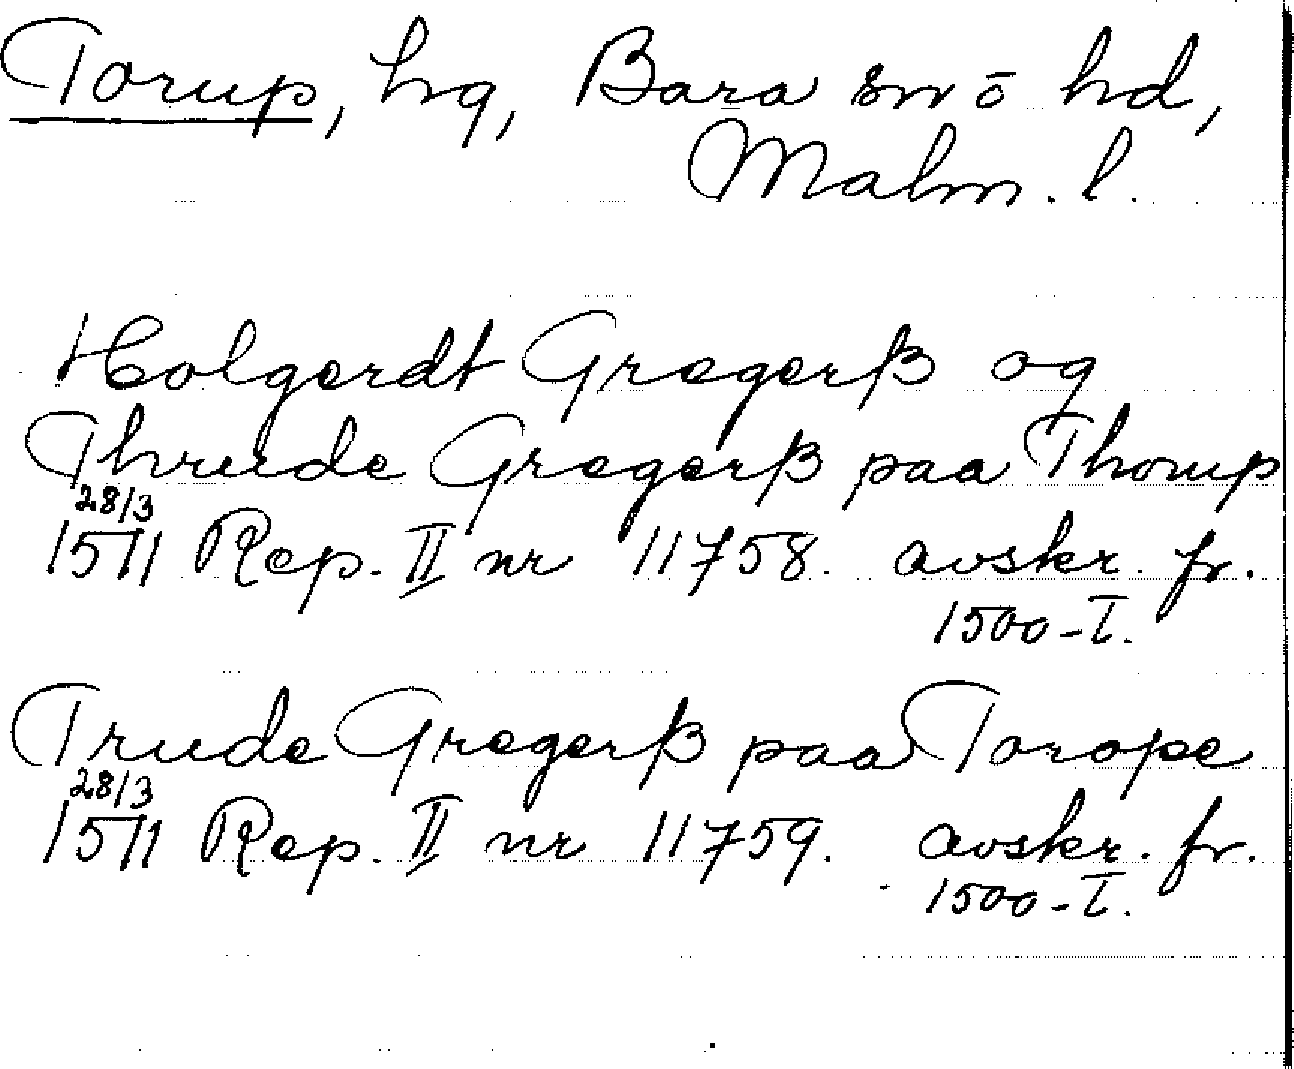 Torup, hg, Bara sn ō hd,
Malm. l.
Holgerdt Gregerß og
Thrude Gregerß paa Thorup
28/3
1511 Rep. II nr 11758. avskr. fr.
1500-T.
Trude Gregerß paa Torope
28/3
1511 Rep. II nr 11759. avskr. fr.
1500-T.